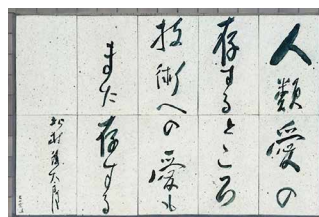 人類愛の
存するところ
技術への愛も
また存する
松村隆太郎